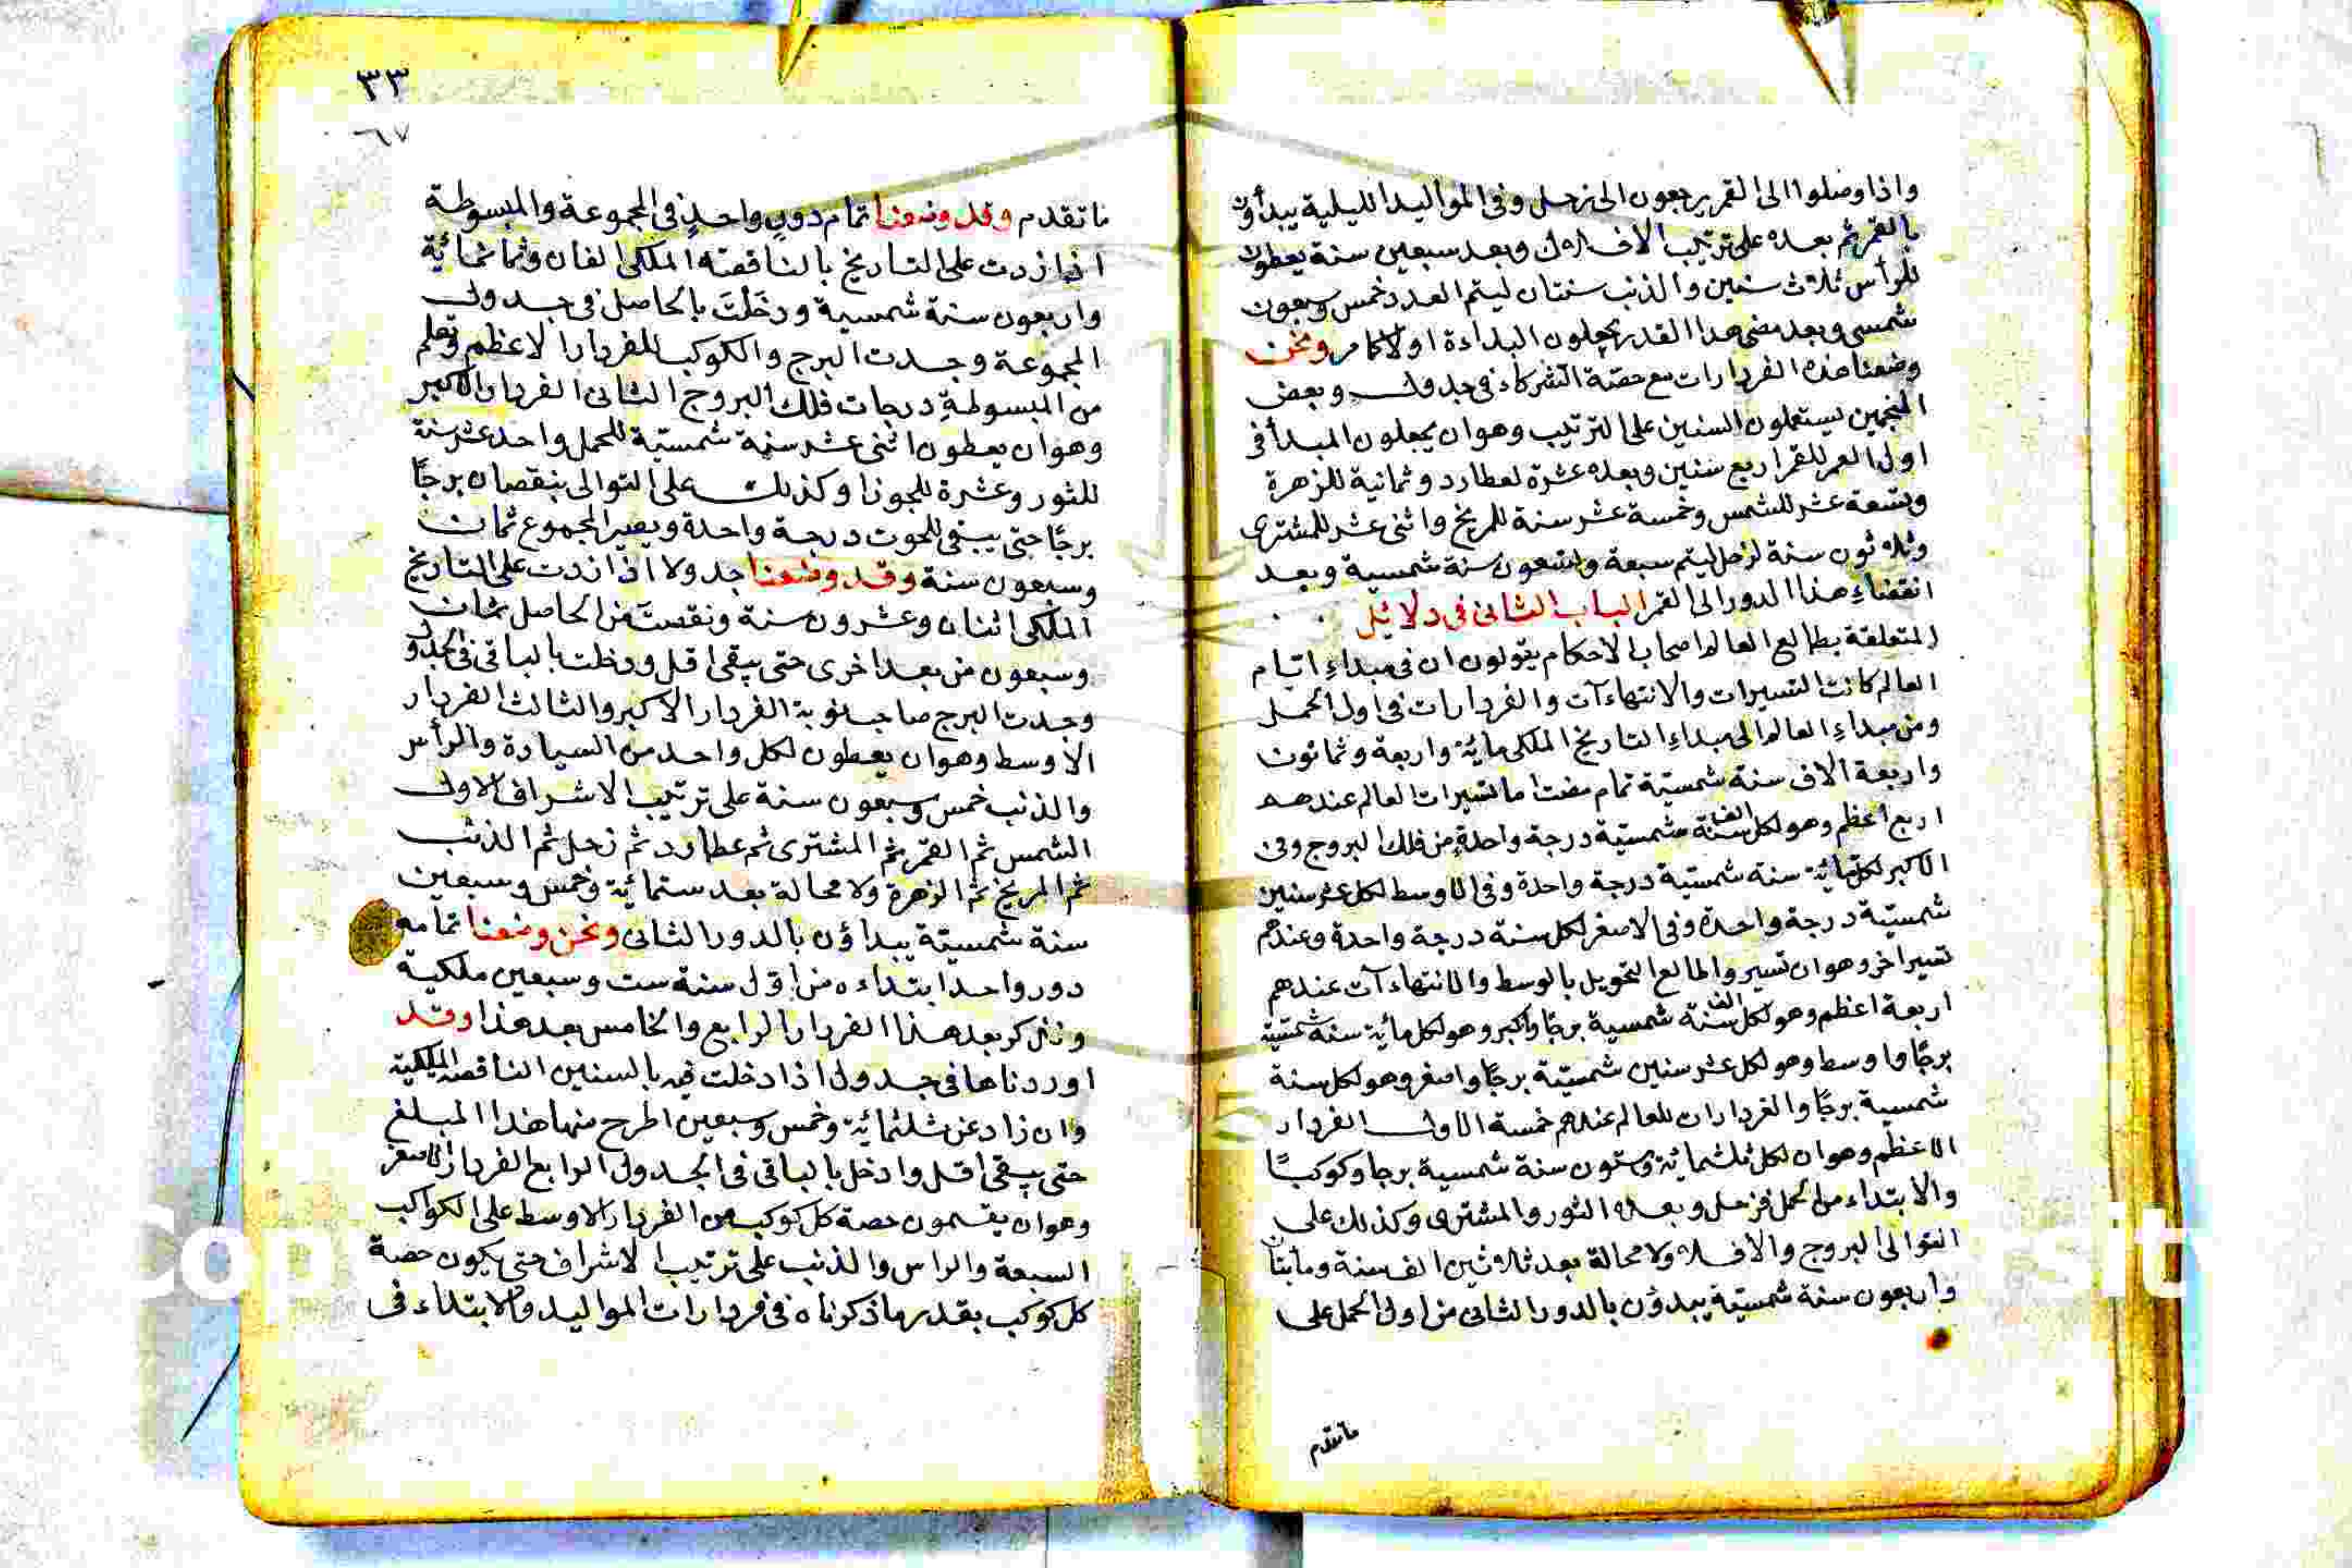 واذا وصلوا الى القمر يرجعون الى زحل وفى المواليد الليلية يبدأون
بالقمر ثم بعده على ترتيب الافلاك وبعد سبعين سنة يعطون
للرأس ثلاث سنين والذنب سنتان ليتم العدد خمس وسبعون
شمسى وبعد مضى هذا القدر يجعلون البداءة اولا كما مر ونحن
وضعنا هذه الفردارات مع حصة الشركاء فى جدول وبعض
المنجمين يستعملون السنين على الترتيب وهو ان يجعلون المبدأ فى
اول العمر للقمر اربع سنين وبعده عشرة لعطارد وثمانية للزهرة
وتسعة عشر للشمس وخمسة عشر سنة للمريخ واثنى عشر للمشترى
وثلاثون سنة لزحل ليتم سبعة وتسعون سنة شمسية وبعد
انقضاء هذا الدور الى القمر الباب الثانى فى دلائل
المتعلقة بطالع العالم اصحاب الاحكام يقولون ان فى مبداء ايام
العالم كانت التسييرات والانتهاءآت والفردارات فى اول الحمل
ومن مبداء العالم الى مبداء التاريخ الملكى مائة واربعة وثمانون
واربعة الاف سنة شمسية تمام مضت اما تسييرات العالم عندهم
اربع اعظم وهو لكل الف سنة شمسية درجة واحدة من فلك البروج وفى
الاكبر لكل مائة سنة شمسية درجة واحدة وفى الاوسط لكل عشر سنين
شمسية درجة واحدة وفى الاصغر لكل سنة درجة واحدة وعندهم
تسيير اخر وهو ان تسيير والطالع التحويل بالوسط والانتهاءآت عندهم
اربعة اعظم وهو لكل الف سنة شمسية برجًا واكبر وهو لكل مائة سنة شمسية
برجًا واوسط وهو لكل عشر سنين شمسية برجًا واصغر وهو لكل سنة
شمسية برجًا والفردارات للعالم عندهم خمسة الاول الفردار
الاعظم وهو ان لكل ثلثمائة وستون سنة شمسية برجا وكوكبًا
والابتداء من الحمل فزحل وبعده الثور والمشترى وكذلك على
التوالى البروج والافلاك ولا محالة بعد ثلاثين الف سنة ومأيتان
واربعون سنة شمسية يبدؤن بالدور الثانى من اول الحمل على
ما تقدم
٣٣
٦٧
ما تقدم وقد وضعنا تمام دور واحد فى المجموعة والمبسوطة
اذا زدت على التاريخ بالناقصه الملكى الفان وثمانمائة
واربعون سنة شمسية ودخلت بالحاصل فى جدول
المجموعة وجدت البرج والكوكب للفردار الاعظم وتعلم
من المبسوطة درجات فلك البروج الثانى الفردار الاكبر
وهو ان يعطون اثنى عشر سنة شمسية للحمل واحد عشر سنة
للثور وعشرة للجوزا وكذلك على التوالى بنقصان برجًا
برجًا حتى يبقى للحوت درجة واحدة ويصير المجموع ثمان
وسبعون سنة وقد وضعنا جدولا اذا زدت على التاريخ
الملكى اثنان وعشرون سنة ونقصت من الحاصل ثمان
وسبعون من بعد اخرى حتى يبقى اقل ودخلت بالباقى فى الجدول
وجدت البرج صاحب نوبة الفردار الاكبر والثالث الفردار
الاوسط وهو ان يعطون لكل واحد من السيارة والرأس
والذنب خمس وسبعون سنة على ترتيب الاشراف الاول
الشمس ثم القمر ثم المشترى ثم عطارد ثم زحل ثم الذنب
ثم المريخ ثم الزهرة ولا محالة بعد ستمائة وخمس وسبعين
سنة شمسية يبداؤن بالدور الثانى ونحن وضعنا تمامه
دور واحد ابتداءه من اول سنة ست وسبعين ملكية
ونذكر بعد هذا الفردار الرابع والخامس بعد هذا وقد
اوردناها فى جدول اذا دخلت فيه بالسنين الناقصه الملكية
وان زاد عن ثلثمائة وخمس وسبعين اطرح منها هذا المبلغ
حتى يبقى اقل وادخل بالباقى فى الجدول الرابع الفردار الاصغر
وهو ان يقسمون حصة كل كوكب من الفردار الاوسط على الكواكب
السبعة والراس والذنب على ترتيب الاشراف حتى يكون حصة
كل كوكب بقدر ما ذكرناه فى فردارات المواليد والابتداء فى